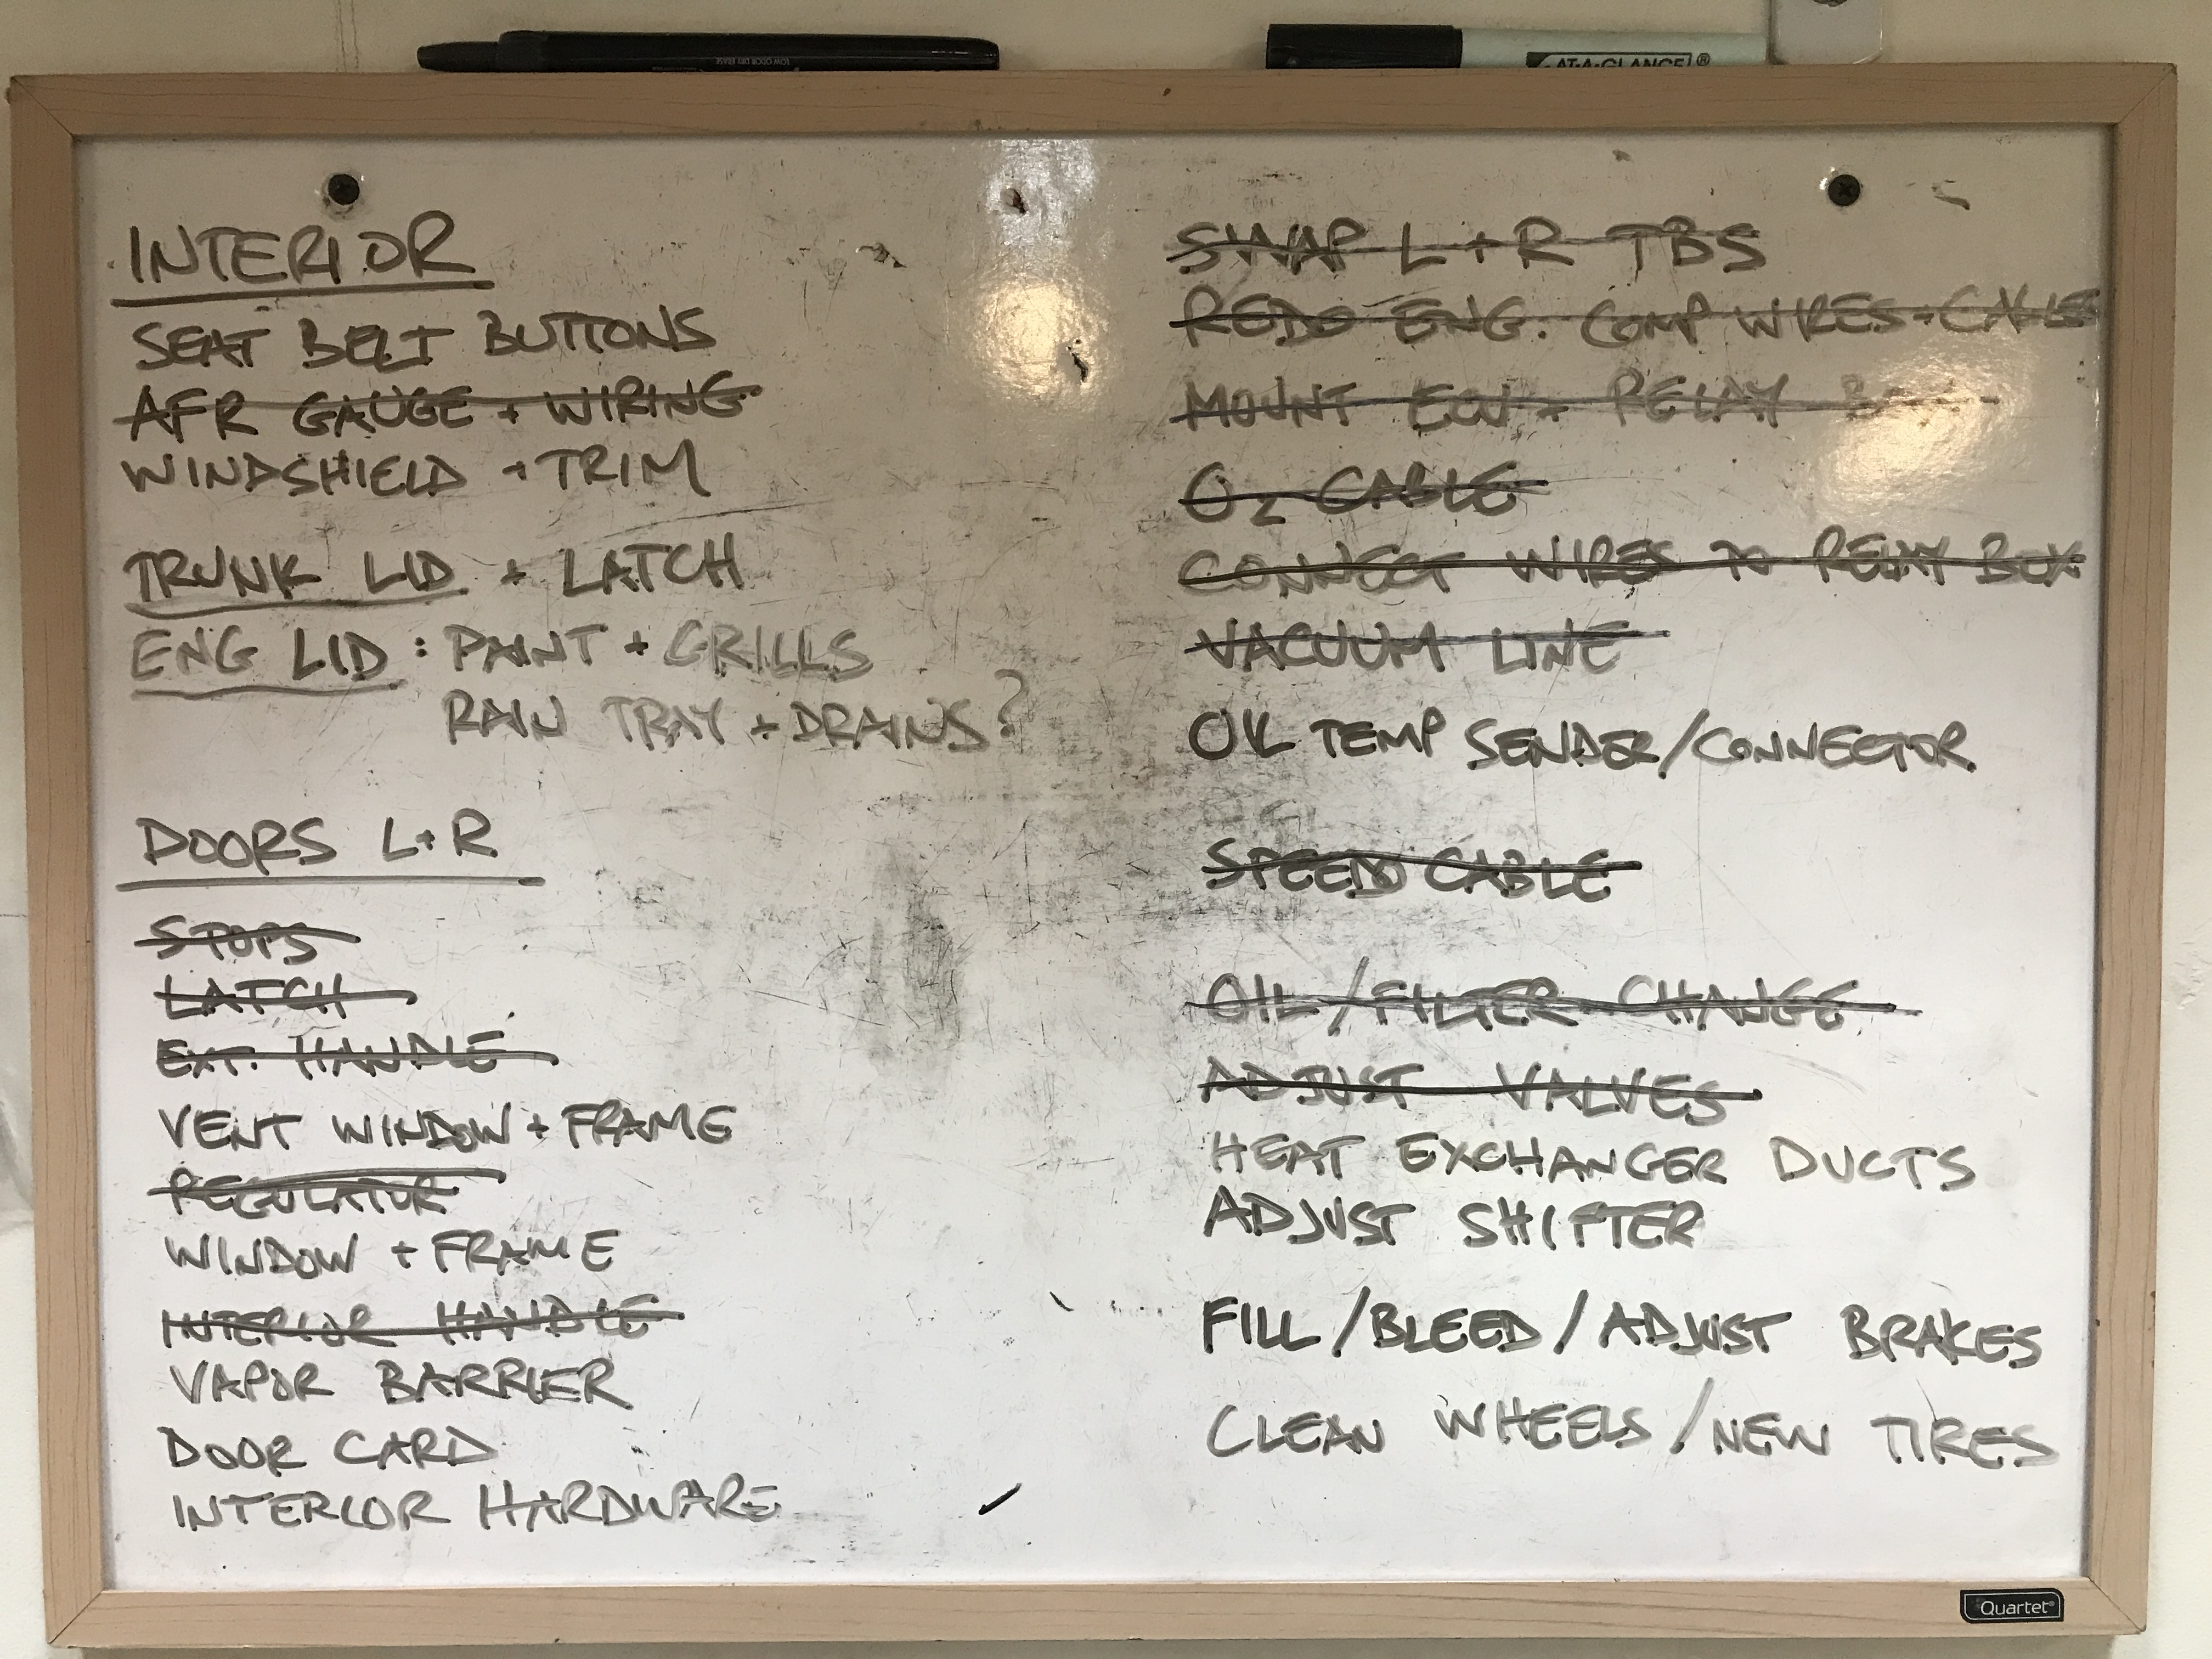 LOW ODOR DRY ERASE
AT-A-GLANCE®
INTERIOR
SEAT BELT BUTTONS
AFR GAUGE + WIRING
WINDSHIELD + TRIM
TRUNK LID + LATCH
ENG LID : PAINT + GRILLS
RAIN TRAY + DRAINS?
DOORS L+R
STOPS
LATCH
EXT. HANDLE
VENT WINDOW + FRAME
REGULATOR
WINDOW + FRAME
INTERIOR HANDLE
VAPOR BARRIER
DOOR CARD
INTERIOR HARDWARE
SWAP L + R TBS
REDO ENG. COMP WIRES + CABLES
MOUNT ECU + RELAY
O2 CABLE
CONNECT WIRES TO RELAY BOX
VACUUM LINE
OIL TEMP SENDER/CONNECTOR
SPEEDO CABLE
OIL/FILTER CHANGE
ADJUST VALVES
HEAT EXCHANGER DUCTS
ADJUST SHIFTER
FILL/BLEED/ADJUST BRAKES
CLEAN WHEELS/NEW TIRES
Quartet®